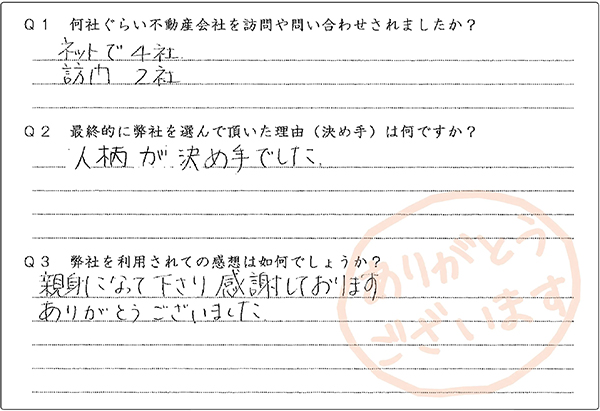 Q1 何社ぐらい不動産会社を訪問や問い合わせされましたか？
ネットで 4社
訪問 2社
Q2 最終的に弊社を選んで頂いた理由（決め手）は何ですか？
人柄が決め手でした。
Q3 弊社を利用されての感想は如何でしょうか？
親身になって下さり感謝しております
ありがとうございました
ありがとう
ございます